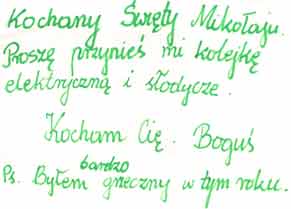 Kochany Święty Mikołaju.
Proszę przynieś mi kolejkę
elektryczną i słodycze.
Kocham Cię. Boguś
Ps. Byłem bardzo grzeczny w tym roku.